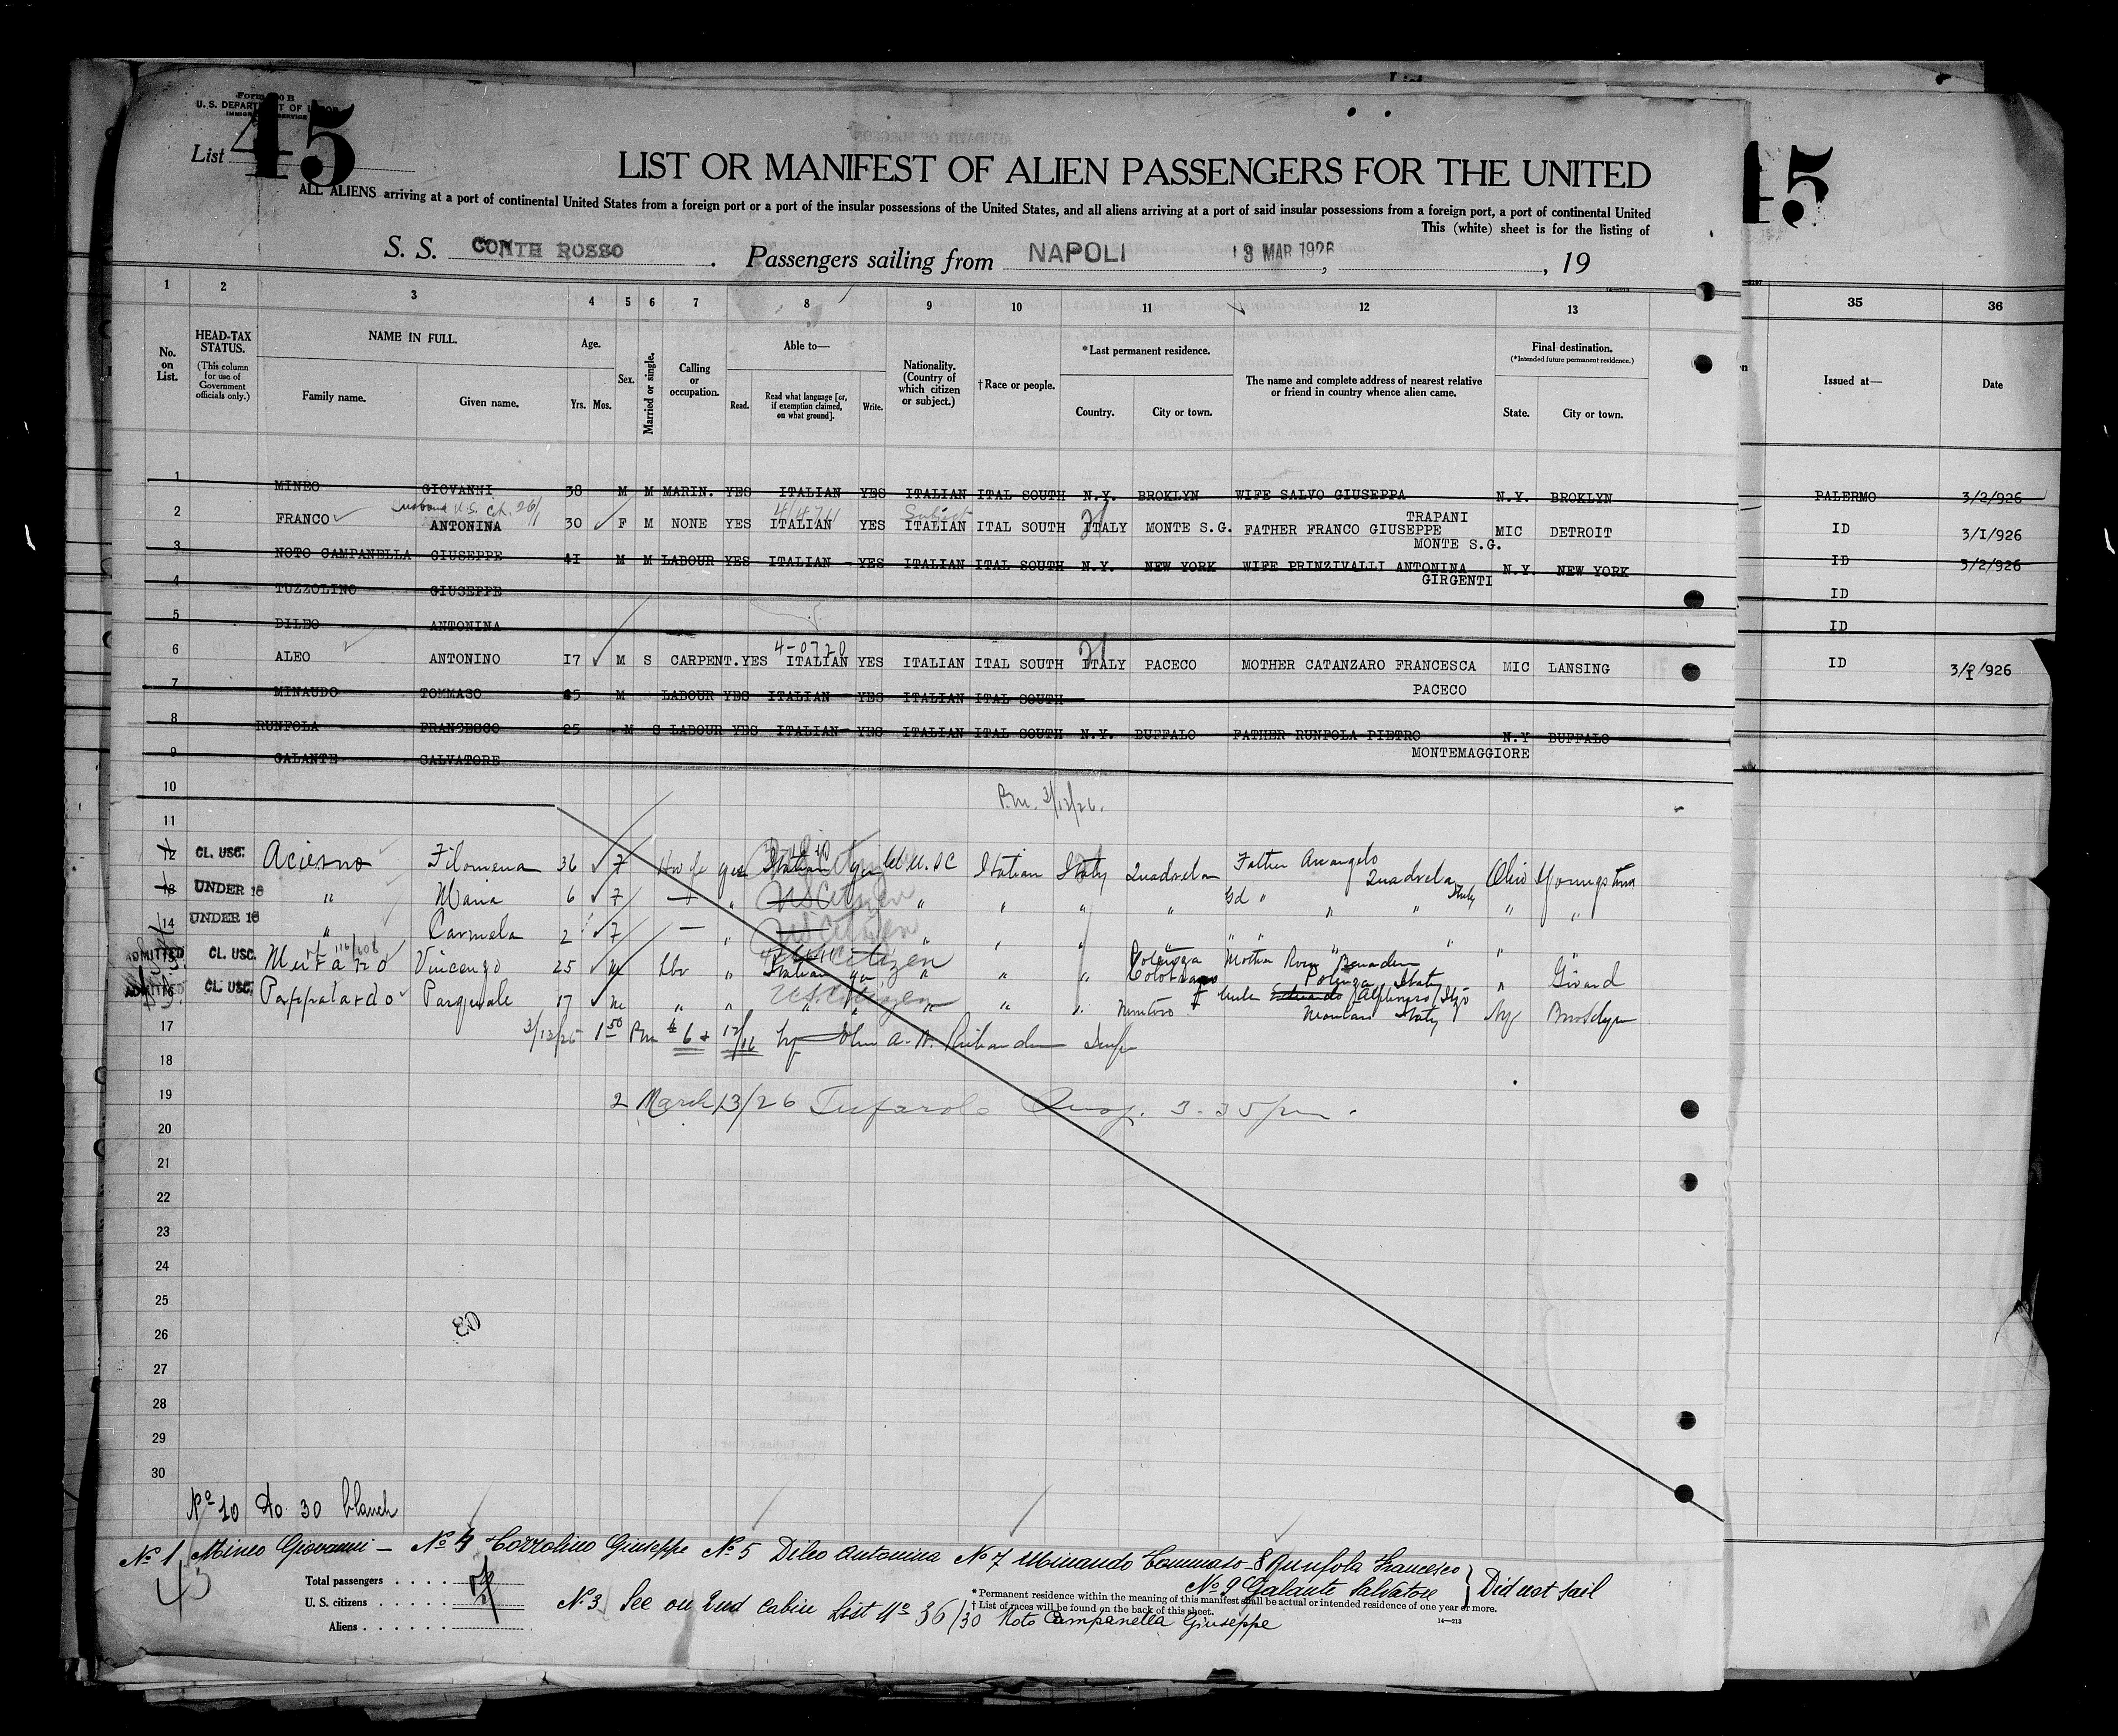 Form 500 B
U. S. DEPARTMENT OF LABOR
IMMIGRATION SERVICE
List 45
45
LIST OR MANIFEST OF ALIEN PASSENGERS FOR THE UNITED
ALL ALIENS arriving at a port of continental United States from a foreign port or a port of the insular possessions of the United States, and all aliens arriving at a port of said insular possessions from a foreign port, a port of continental United
This (white) sheet is for the listing of
S. S. CONTE ROSSO. Passengers sailing from NAPOLI 3 MAR 1926, , 19
1 2 3 4 5 6 7 8 9 10 11 12 13 35 36
No. on List.
HEAD-TAX STATUS. (This column for use of Government officials only.)
NAME IN FULL.
Family name. Given name.
Age. Yrs. Mos.
Sex.
Married or single.
Calling or occupation.
Able to—
Read. Read what language [or, if exemption claimed, on what ground]. Write.
Nationality. (Country of which citizen or subject.)
†Race or people.
*Last permanent residence.
Country. City or town.
The name and complete address of nearest relative or friend in country whence alien came.
Final destination. (*Intended future permanent residence.)
State. City or town.
Issued at— Date
1 MINEO GIOVANNI 38 M M MARIN. YES ITALIAN YES ITALIAN ITAL SOUTH N.Y. BROKLYN WIFE SALVO GIUSEPPA N.Y. BROKLYN PALERMO 3/2/926
Husband U.S. Cit. 4/474 Subject TRAPANI
2 FRANCO ANTONINA 30 F M NONE YES ITALIAN YES ITALIAN ITAL SOUTH ITALY MONTE S.G. FATHER FRANCO GIUSEPPE MIC DETROIT ID 3/I/926
MONTE S.G.
3 NOTO CAMPANELLA GIUSEPPE 4I M M LABOUR YES ITALIAN YES ITALIAN ITAL SOUTH N.Y. NEW YORK WIFE PRINZIVALLI ANTONINA N.Y. NEW YORK ID 3/2/926
GIRGENTI
4 TUZZOLINO GIUSEPPE ID
5 DILEO ANTONINA ID
4-0720
6 ALEO ANTONINO I7 M S CARPENT. YES ITALIAN YES ITALIAN ITAL SOUTH ITALY PACECO MOTHER CATANZARO FRANCESCA MIC LANSING ID 3/I/926
PACECO
7 MINAUDO TOMMASO 45 M LABOUR YES ITALIAN YES ITALIAN ITAL SOUTH
8 RUNFOLA FRANCESCO 25 M S LABOUR YES ITALIAN YES ITALIAN ITAL SOUTH N.Y. BUFFALO FATHER RUNFOLA PIETRO N.Y BUFFALO
MONTEMAGGIORE
9 GALANTE SALVATORE
10
P.m. 3/13/26.
11
12 CL. USC. Acierno Filomena 36 F yes Italian yes Cl U.SC Italian Italy Quadrelle Father Arcangelo Quadrelle Italy Ohio Youngstown
13 UNDER 16 " Maria 6 F — " US Citizen " " " " Gd " " " " "
14 UNDER 16 " Carmela 2 F — " US Citizen " " " " " " "
ADMITTED CL. USC. Murano Vincenzo 25 m Lbr " Italian " " " " Mother Rosa Potenza Italy " Girard
ADMITTED CL. USC. Pappalardo Pasquale 17 m " " US Citizen " " " Uncle Italy Ny Brooklyn
17
18
19 2 March 13/26 Insp. 3.35 pm.
20
21
22
23
24
25
26
27
28
29
30
Nº 10 to 30 blanch
Nº 1 Mineo Giovanni – Nº 4 Tozzolino Giuseppe Nº 5 Dileo Antonina Nº 7 Minaudo Tommaso – 8 Runfola Francesco
Nº 9 Galante Salvatore } Did not sail
Total passengers
U. S. citizens
Aliens
Nº 3 See on 2nd cabin List Nº 36/30 Noto Campanella Giuseppe
* Permanent residence within the meaning of this manifest shall be actual or intended residence of one year or more.
† List of races will be found on the back of this sheet.
14—213